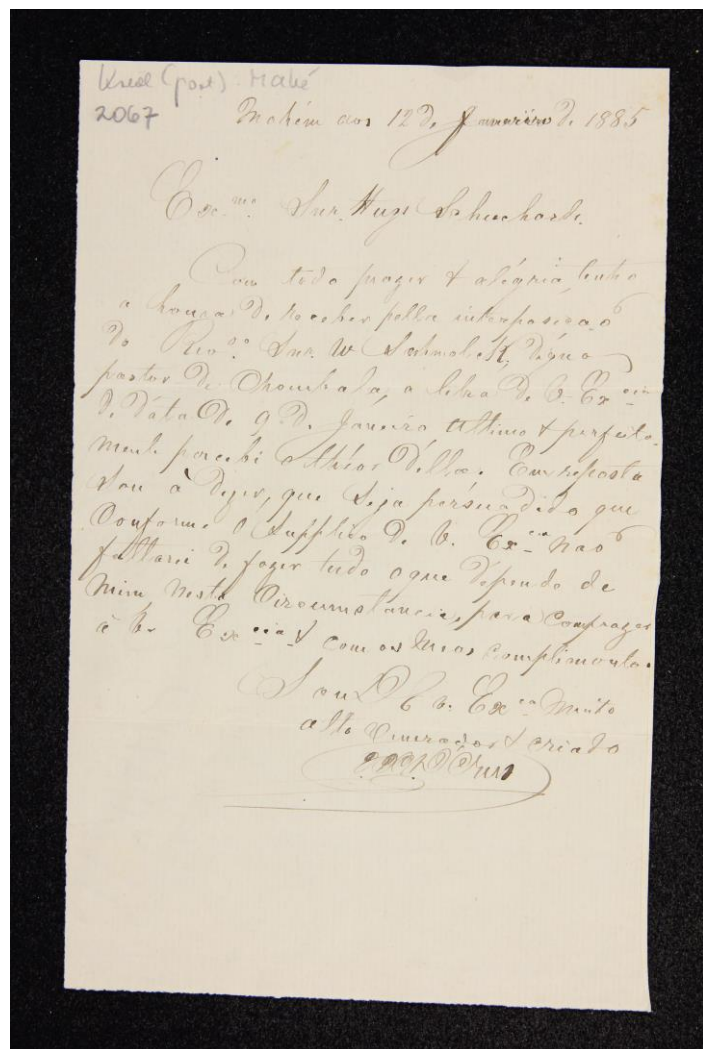 Kreol (port) Mahé
2067
Mahém aos 12 de Janaeiro de 1885
Exmo. Snr. Hugo Schuchardt.
Com todo prazer & alégria, tenho
a honra de receber pella interposição
do Revdo. Snr. W Schmolck, digno
pastor de Chombala, a letra de V. Excia
de dáta de 9. de Janeiro ultimo & perfeita-
mente percebi o théor délla. Em resposta
sou à dizer, que seja pérsuadido que
Conforme o supplico de V. Excia não
faltarei de fazer tudo oque dépende de
mim nesta Circumstancia, para comprazer
à V. Excia & com os meos complimentos
Sou De V. Excia Muito
alto Venerador & criado